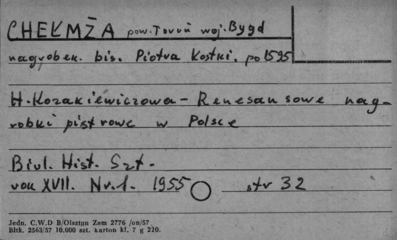 CHEŁMŻA pow. Toruń woj. Bydg
nagrobek. bis. Piotra Kostki. po 1595
H. Kozakiewiczowa - Renesansowe nag-
robki piętrowe w Polsce
Biul. Hist. Szt.
rok XVII. Nr. 1. 1955 str 32
Jedn. C.W.D B/Olsztyn Zam 2776 /on/57
Bltk. 2563/57 10.000 szt. karton kl. 7 g 220.